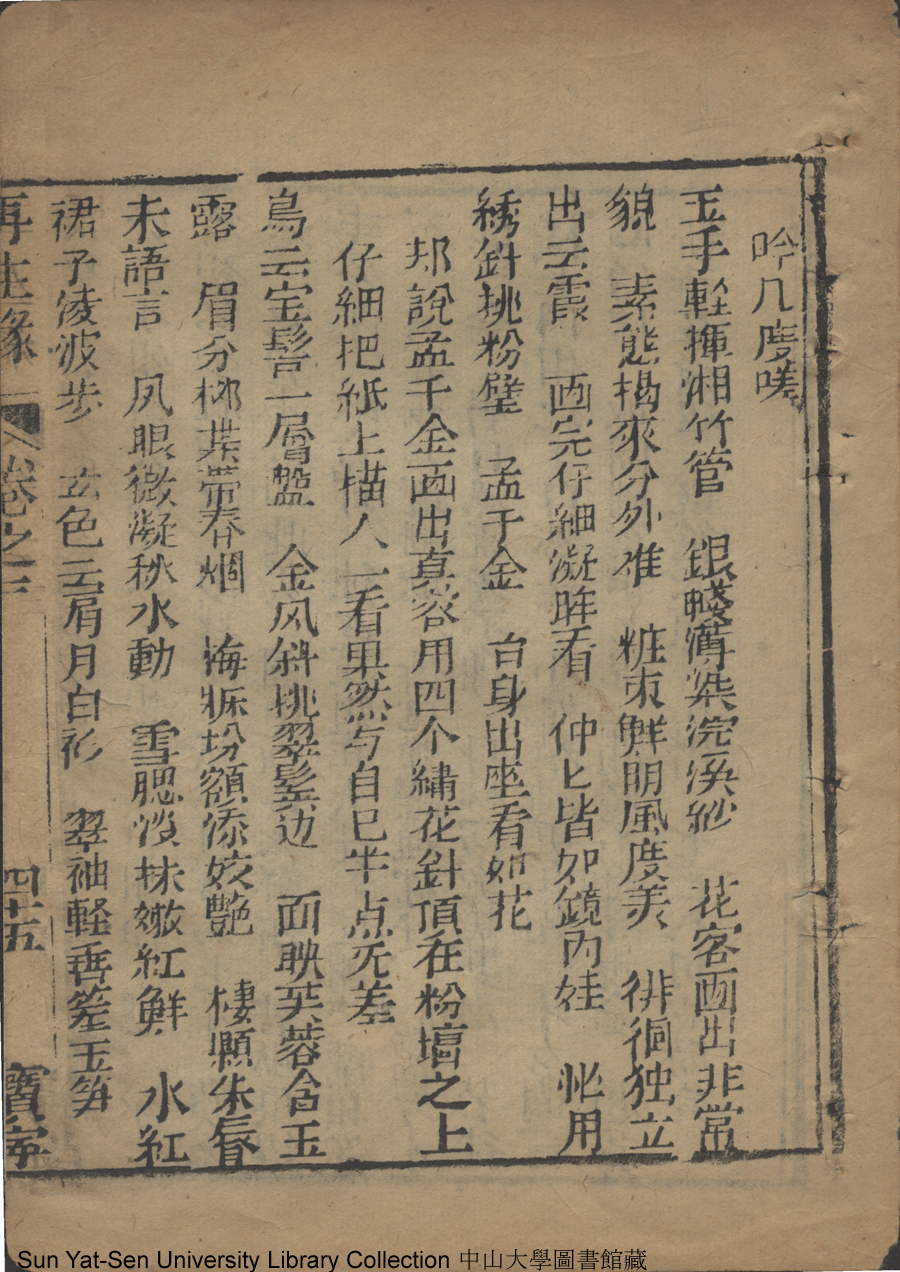 吟几度嗟
玉手輕揮湘竹管 銀毫薄染浣溪紗 花容画出非常
貌 素態楬來分外难 粧束鮮明風度美 徘徊独立
出云霞 画完仔細凝眸看 仲匕皆如鏡内娃 忙用
綉針挑粉璧 孟千金 台身出座看如花
却說孟千金画出真容用四个繡花針頂在粉墻之上
仔細把紙上描人一看果然与自已半点无差
烏云宝髻一層盤 金风斜挑翠髮边 面映芙蓉含玉
露 眉分柳葉帶春烟 海𣒃坋額添姣艷 棲顆朱唇
未語言 凤眼微凝秋水動 雪腮淡抹嫩紅鮮 水紅
裙子凌波步 玄色云肩月白衫 翠袖軽垂差玉笋
再生緣 卷之一 四十五 寶寧
Sun Yat-Sen University Library Collection 中山大學圖書館藏